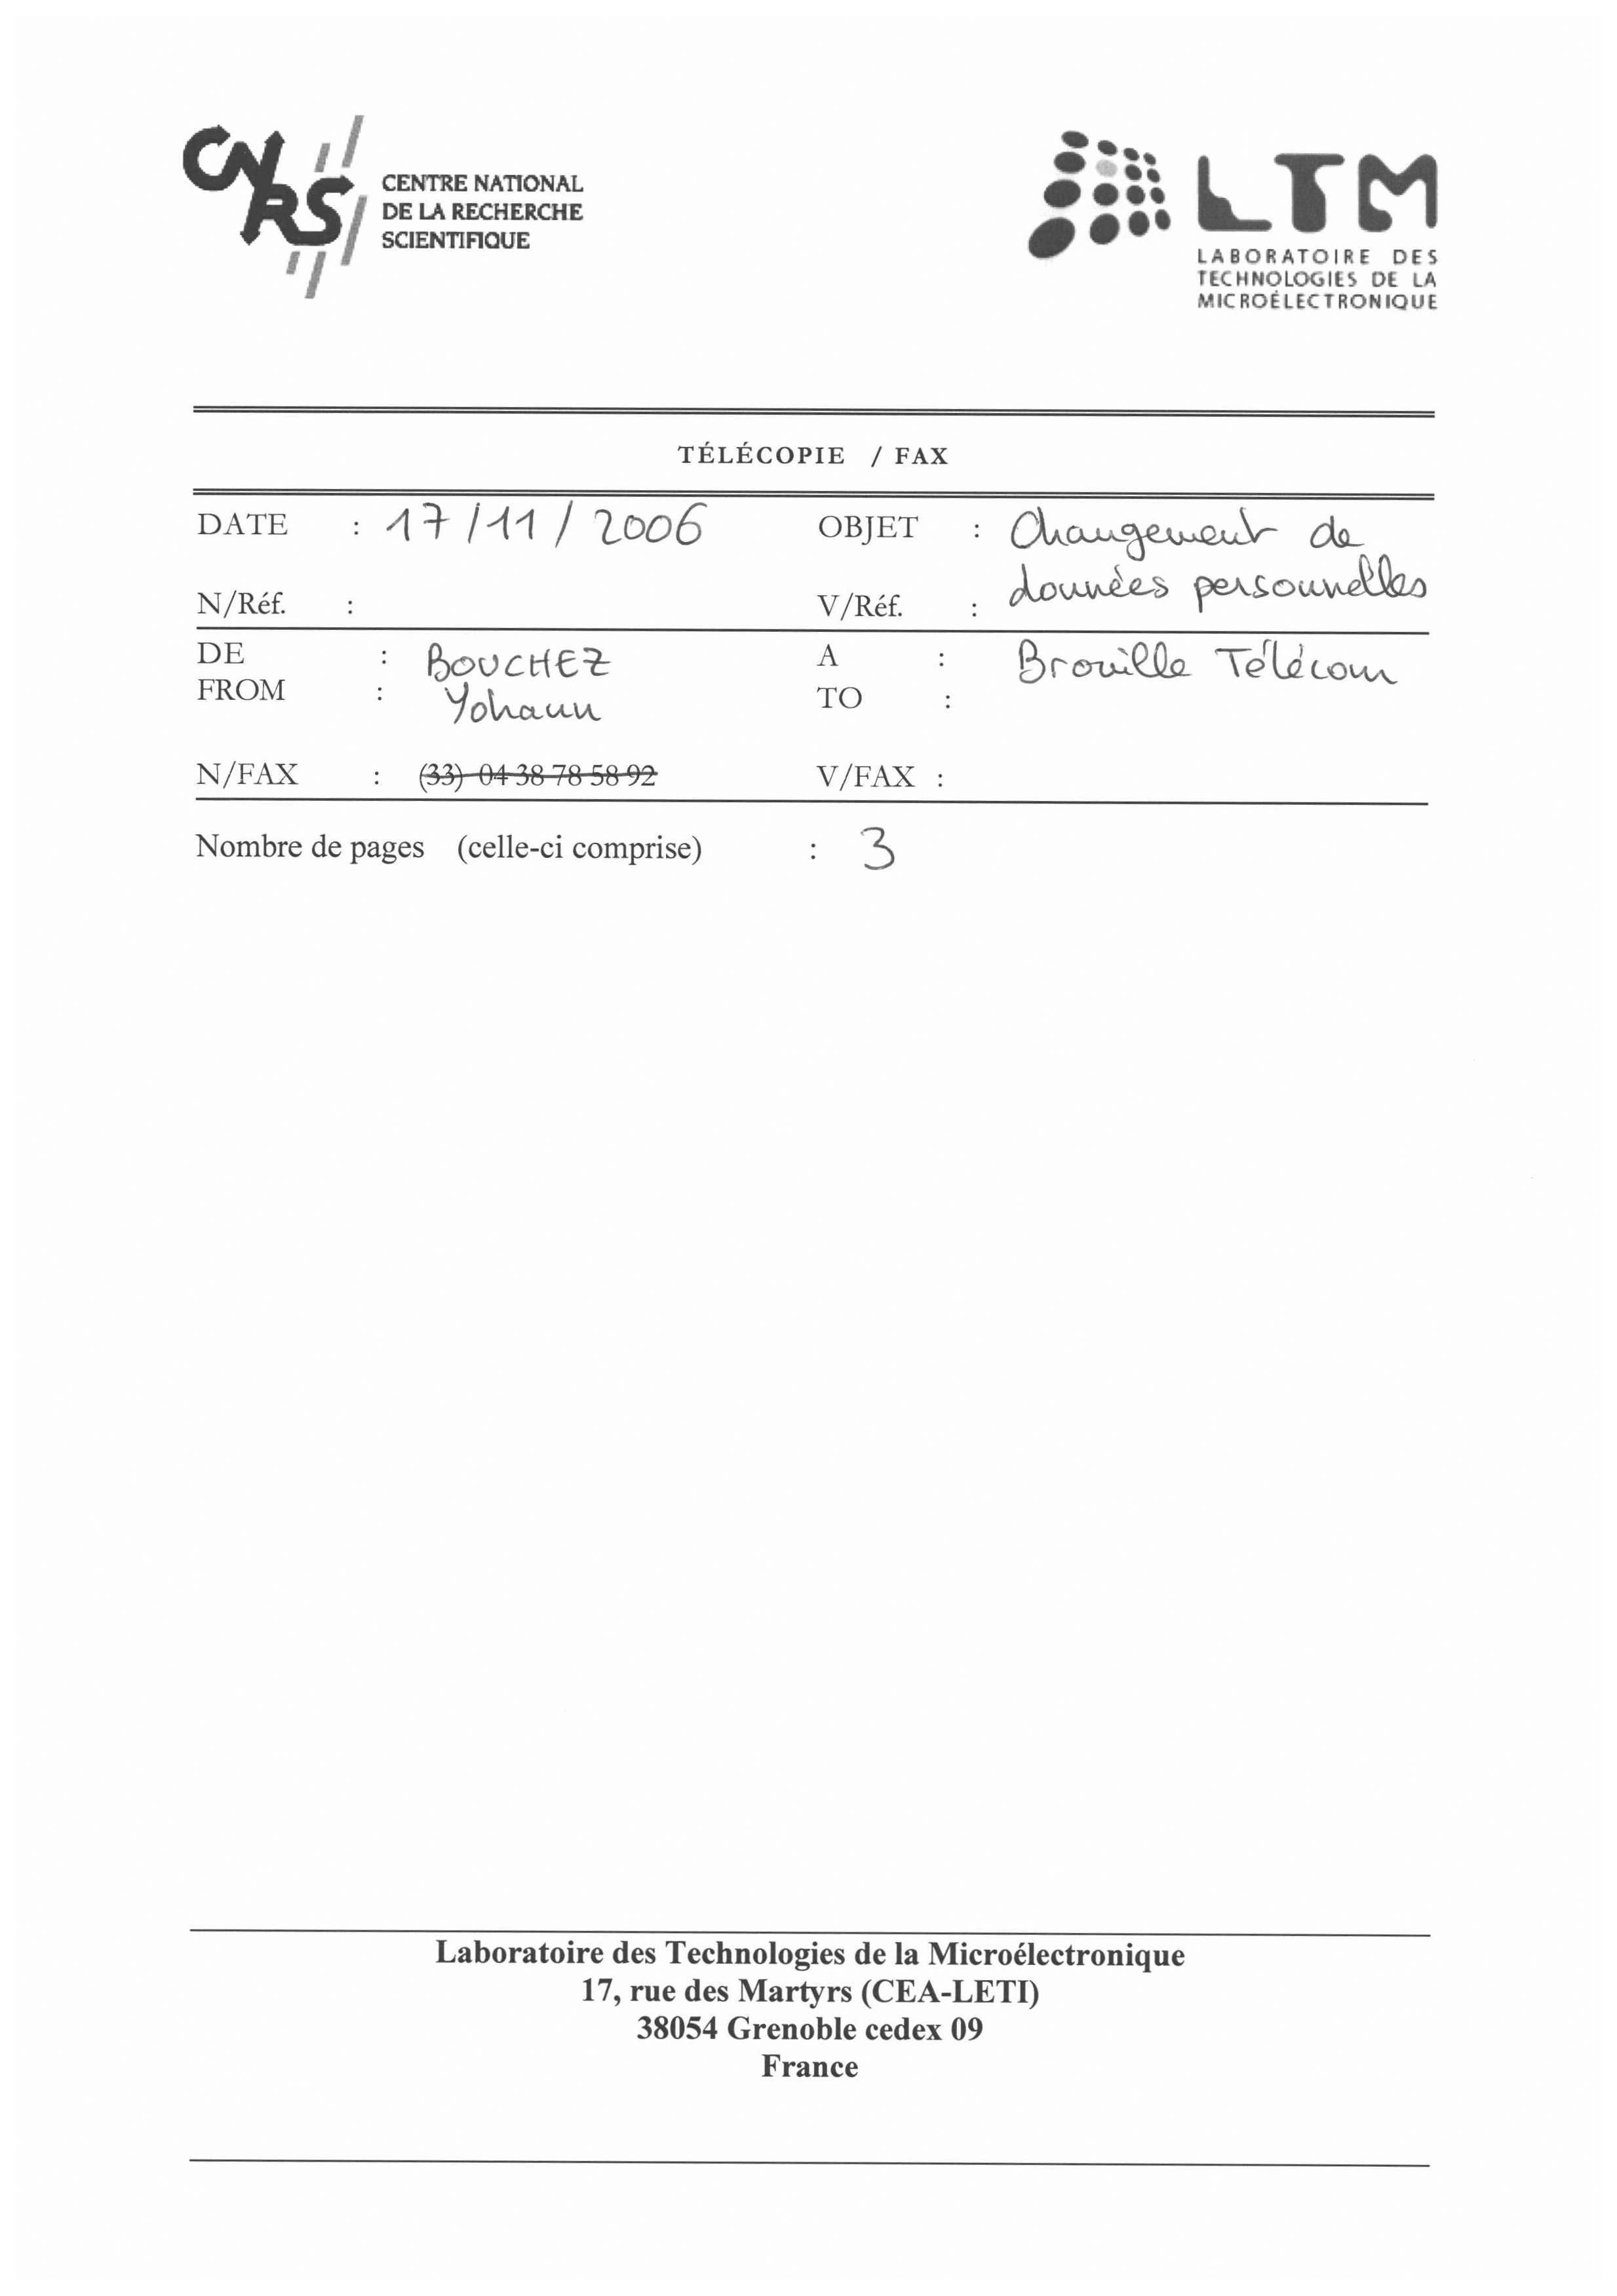 CNRS
CENTRE NATIONAL
DE LA RECHERCHE
SCIENTIFIQUE
LTM
LABORATOIRE DES
TECHNOLOGIES DE LA
MICROÉLECTRONIQUE
TÉLÉCOPIE / FAX
DATE : 17/11/2006 OBJET : Changement de
données personnelles
N/Réf. : V/Réf. :
DE : BOUCHEZ A : Brouille Télécom
FROM : Yohann TO :
N/FAX : (33) 04 38 78 58 92 V/FAX :
Nombre de pages (celle-ci comprise) : 3
Laboratoire des Technologies de la Microélectronique
17, rue des Martyrs (CEA-LETI)
38054 Grenoble cedex 09
France